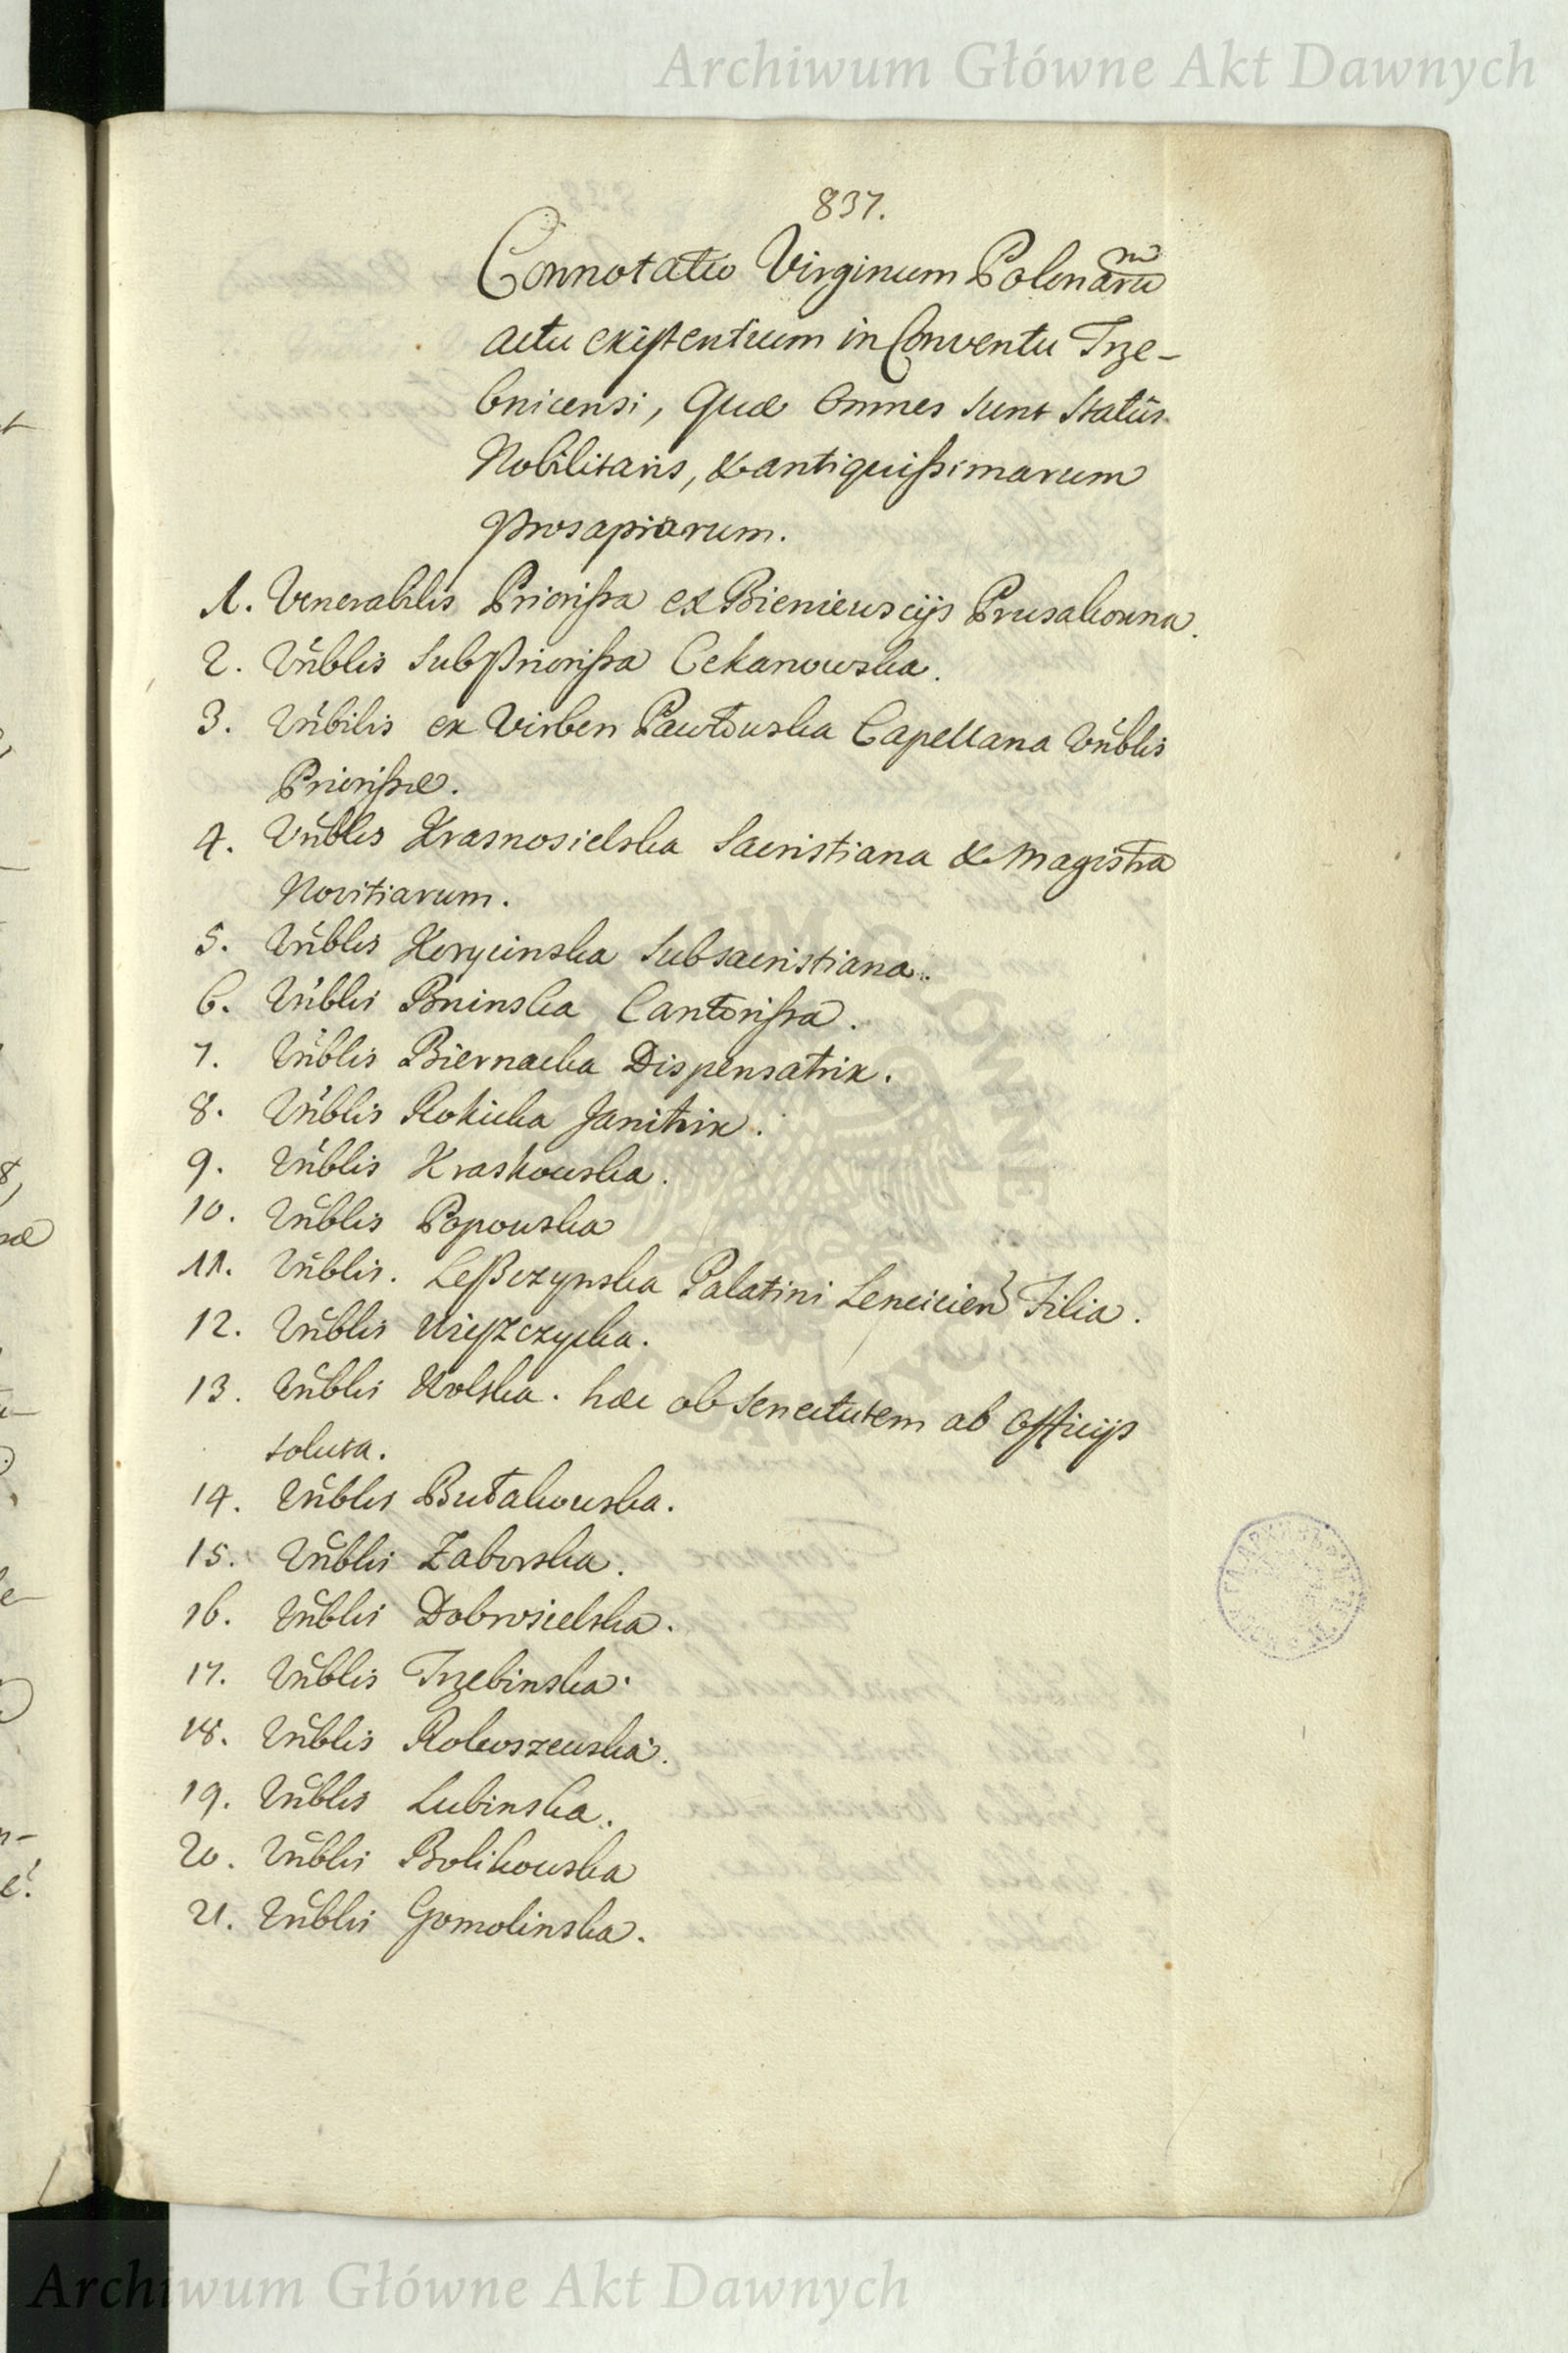 Archiwum Główne Akt Dawnych
837.
Connotatio Virginum Polonarũ
actu existentium in Conventu Trze-
bnicensi, Quæ Omnes sunt Statûs
Nobilitaris, & antiquissimarum
Prosapiarum.
1. Venerabilis Priorissa ex Bieniewscijs Prusakowna.
2. Vñblis SubPriorissa Cekanowska.
3. Vñbilis ex Virben Pawłowska Capellana Vñblis
Priorissæ.
4. Vñblis Krasnosielska Sacristiana & Magistra
Novitiarum.
5. Vñblis Korycinska Subsacristiana.
6. Vñblis Bninska Cantorissa.
7. Vñblis Biernacka Dispensatrix.
8. Vñblis Rokicka Janitrix.
9. Vñblis Kraskowska.
10. Vñblis Popowska
11. Vñblis. Leßczynska Palatini Lencicien Filia.
12. Vñblis Wieszczycka.
13. Vñblis Wolska. hæc ob senectutem ab Officijs
soluta.
14. Vñblis Butakowska.
15. Vñblis Zaborska.
16. Vñblis Dobrosielska.
17. Vñblis Trzebinska.
18. Vñblis Rokoszewska.
19. Vñblis Lubinska.
20. Vñblis Bolikowska
21. Vñblis Gomolinska.
Archiwum Główne Akt Dawnych